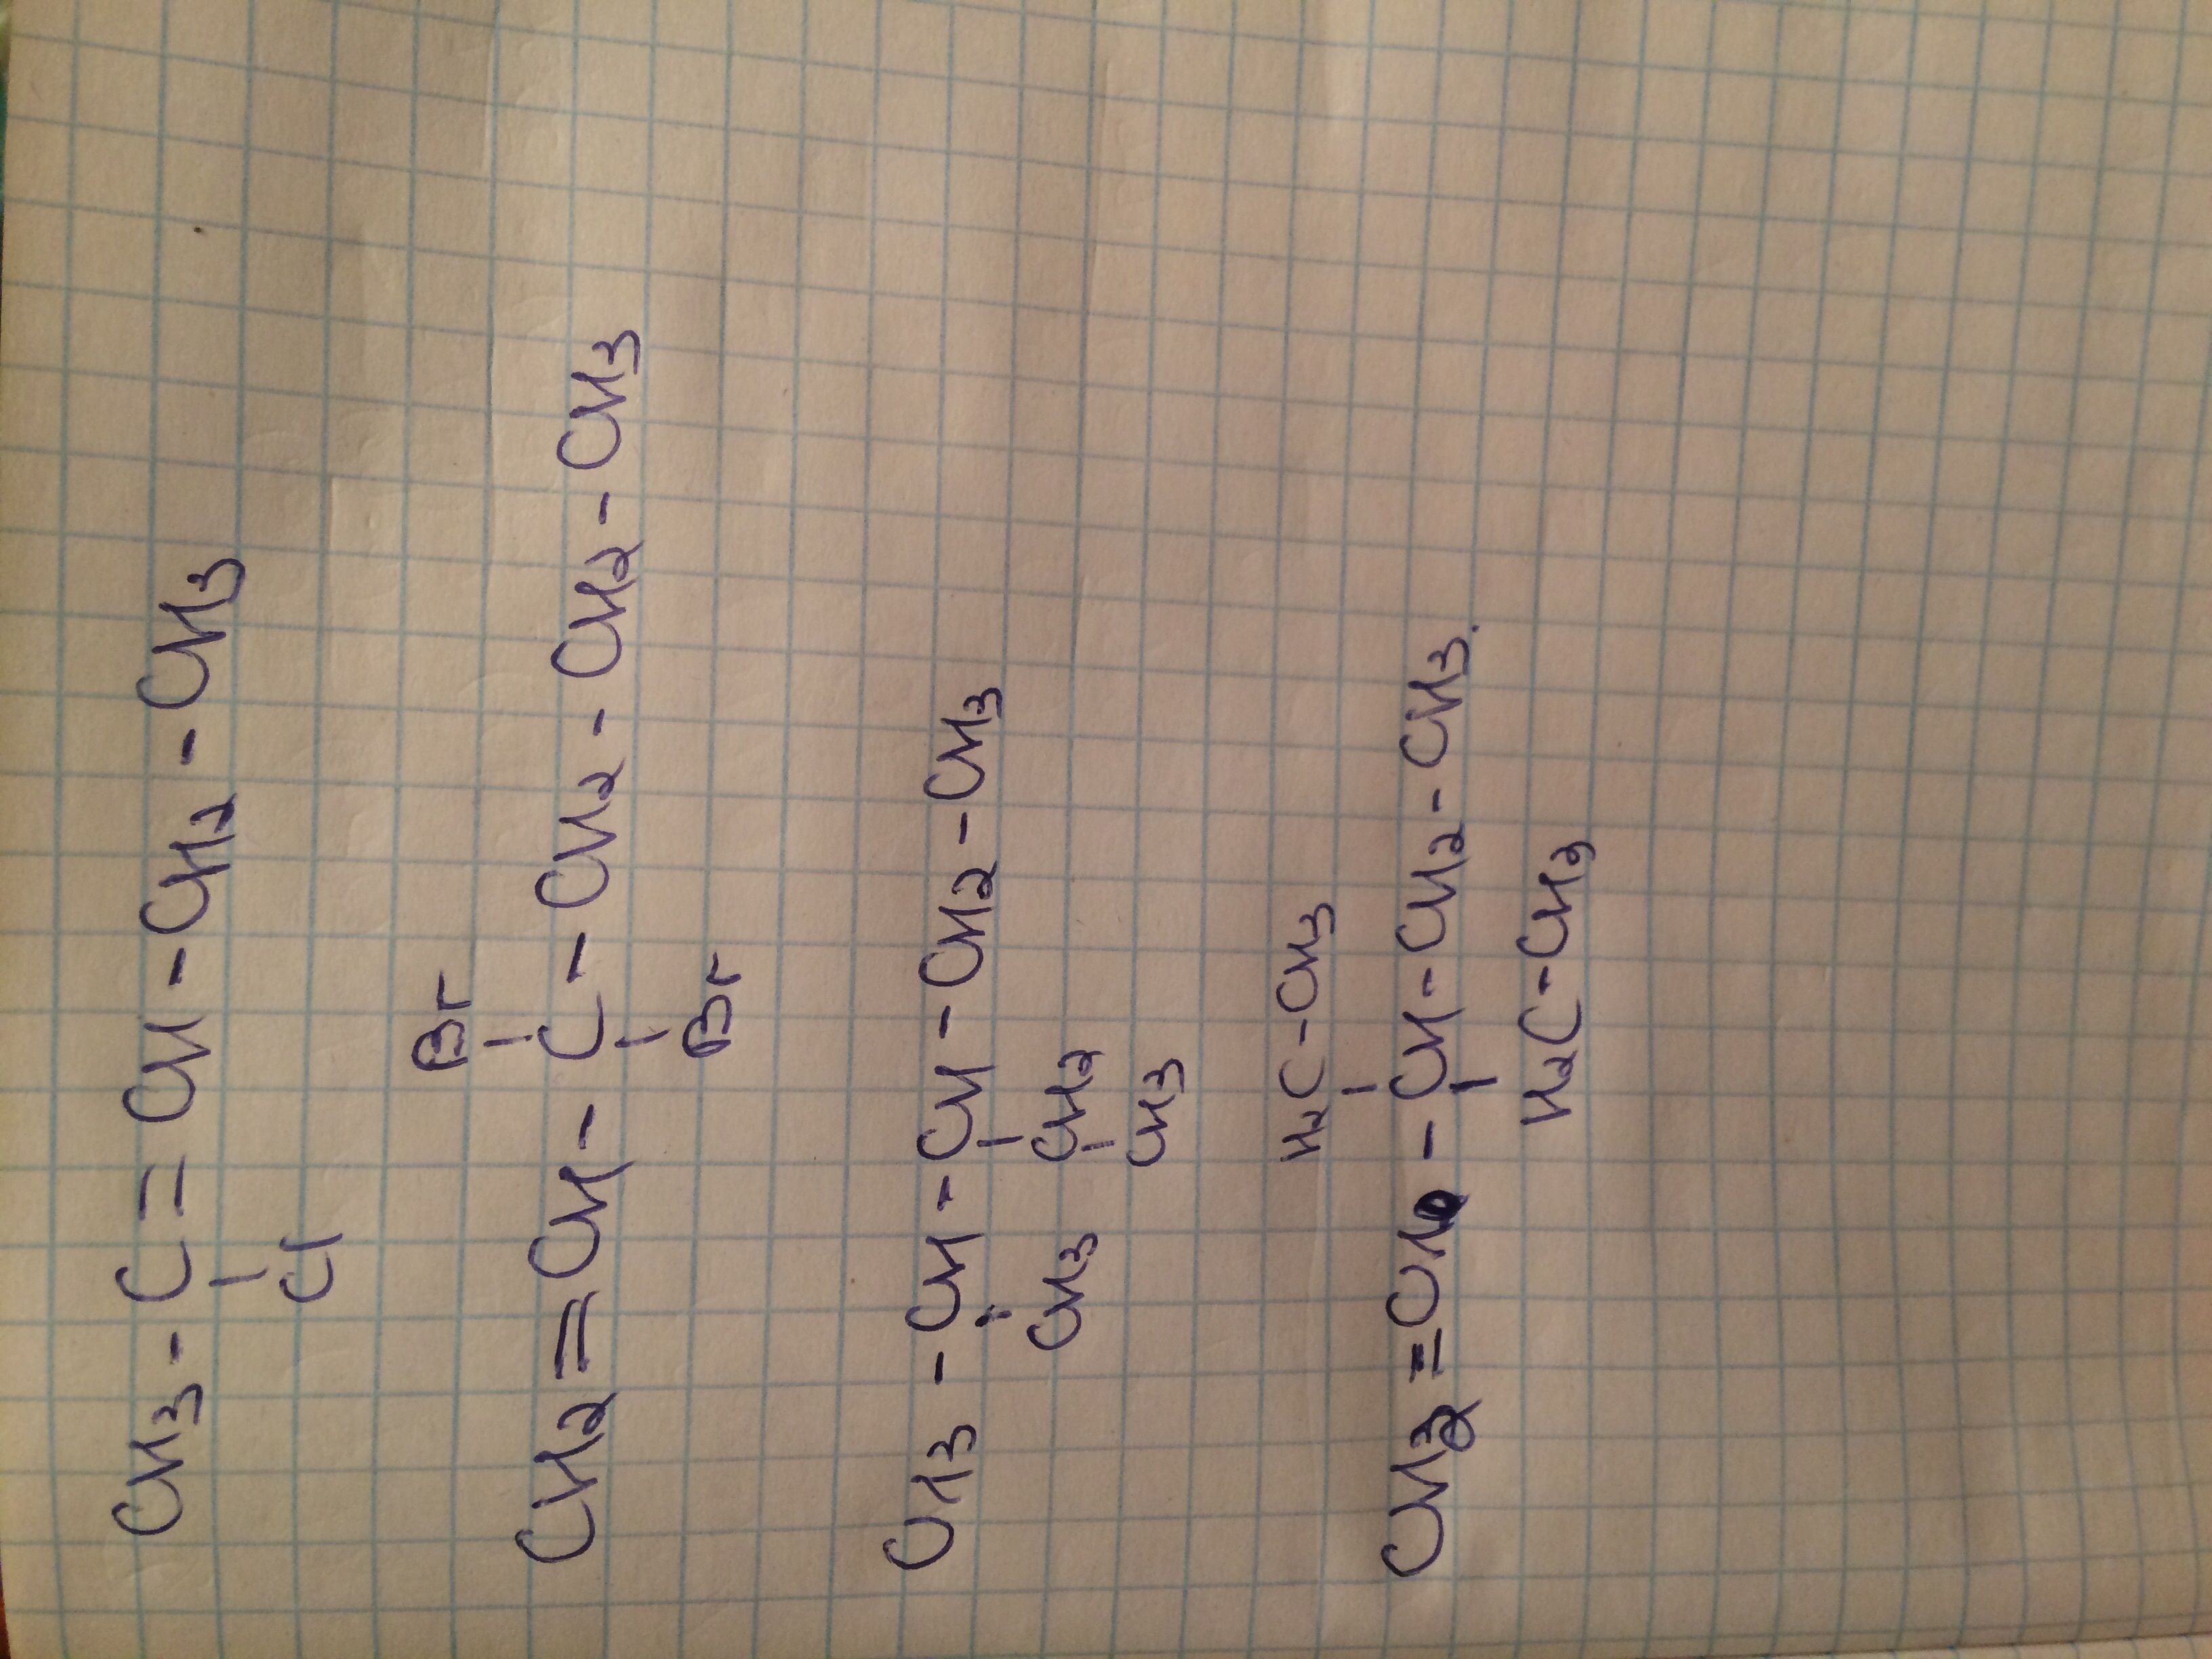 CH3-C=CH-CH2-CH3
Cl
Br
CH2=CH-C-CH2-CH2-CH3
Br
CH3-CH-CH-CH2-CH3
CH3 CH2
CH3
H2C-CH3
CH2=CH-CH-CH2-CH3.
H2C-CH3